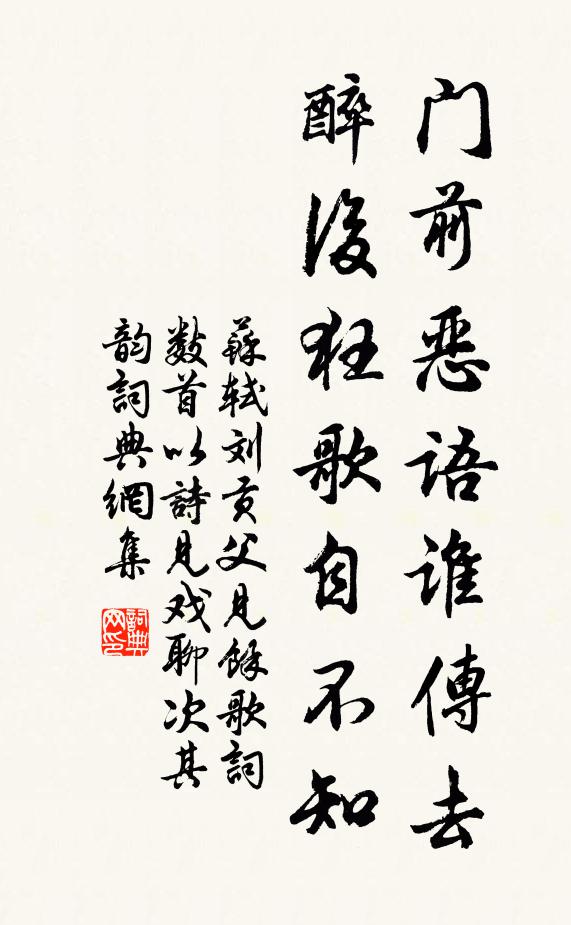 门前恶語谁傳去
醉後狂歌自不知
蘇轼刘贡父見餘歌詞
数首以詩見戏聊次其
韵詞典網集
詞典
网印